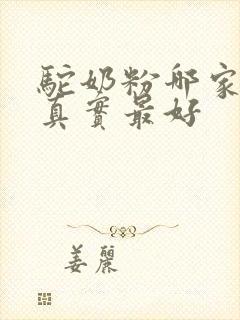 駝奶粉哪家
真實最好
姜麗